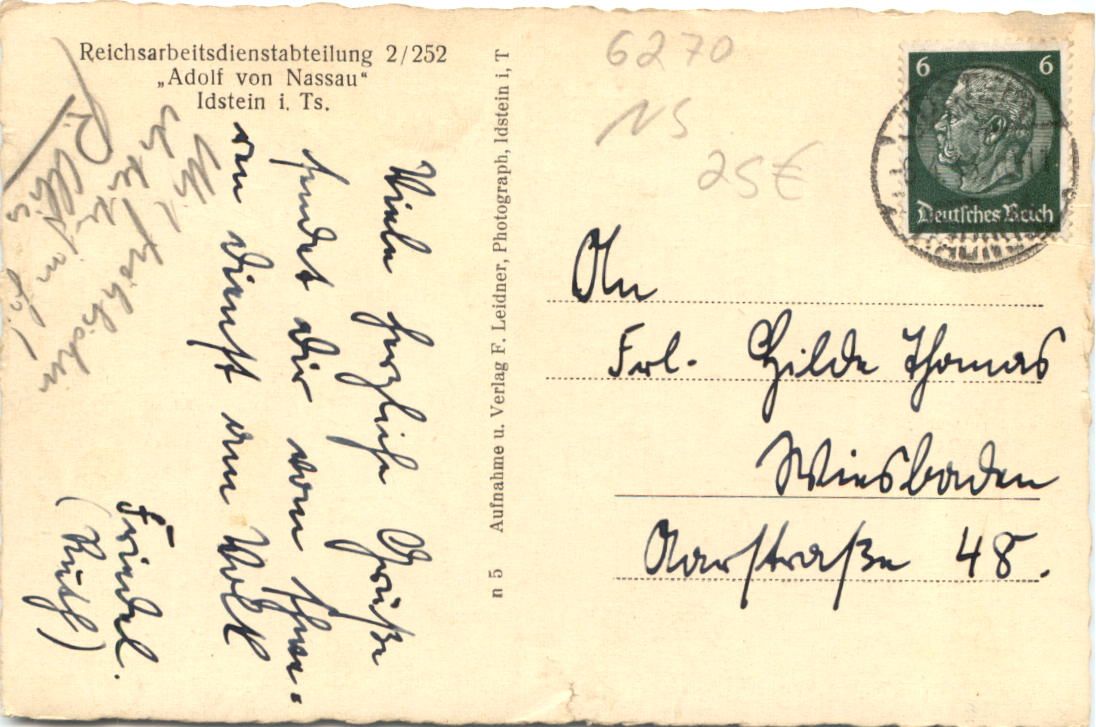 Reichsarbeitsdienstabteilung 2/252
„Adolf von Nassau“
Idstein i. Ts.
Viele herzliche Grüße
sendet dir vom schwe-
ren Dienst am Volk
Friedel.
(Ruth)
n 5 Aufnahme u. Verlag F. Leidner, Photograph, Idstein i, T
6270
NS
25€
6 6
Deutsches Reich
An
Frl. Hilde Thomas
Wiesbaden
Aarstraße 48.